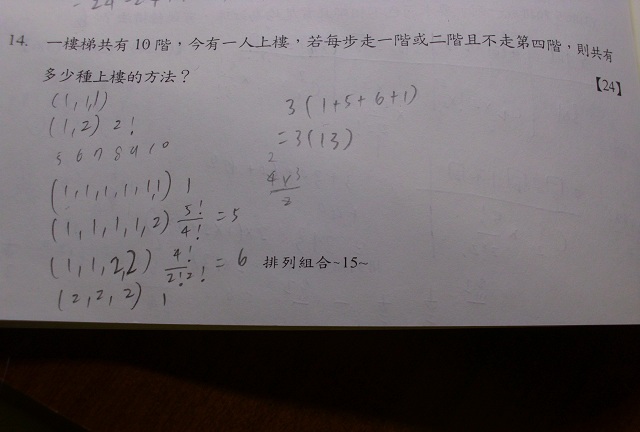 14. 一樓梯共有 10 階，今有一人上樓，若每步走一階或二階且不走第四階，則共有
多少種上樓的方法？
【24】
(1,1,1)
(1,2) 2!
5 6 7 8 9 10
(1,1,1,1,1,1) 1
(1,1,1,1,2) 5!/4! = 5
(1,1,2,2) 4!/2!2! = 6
(2,2,2) 1
3(1+5+6+1)
=3(13)
排列組合~15~